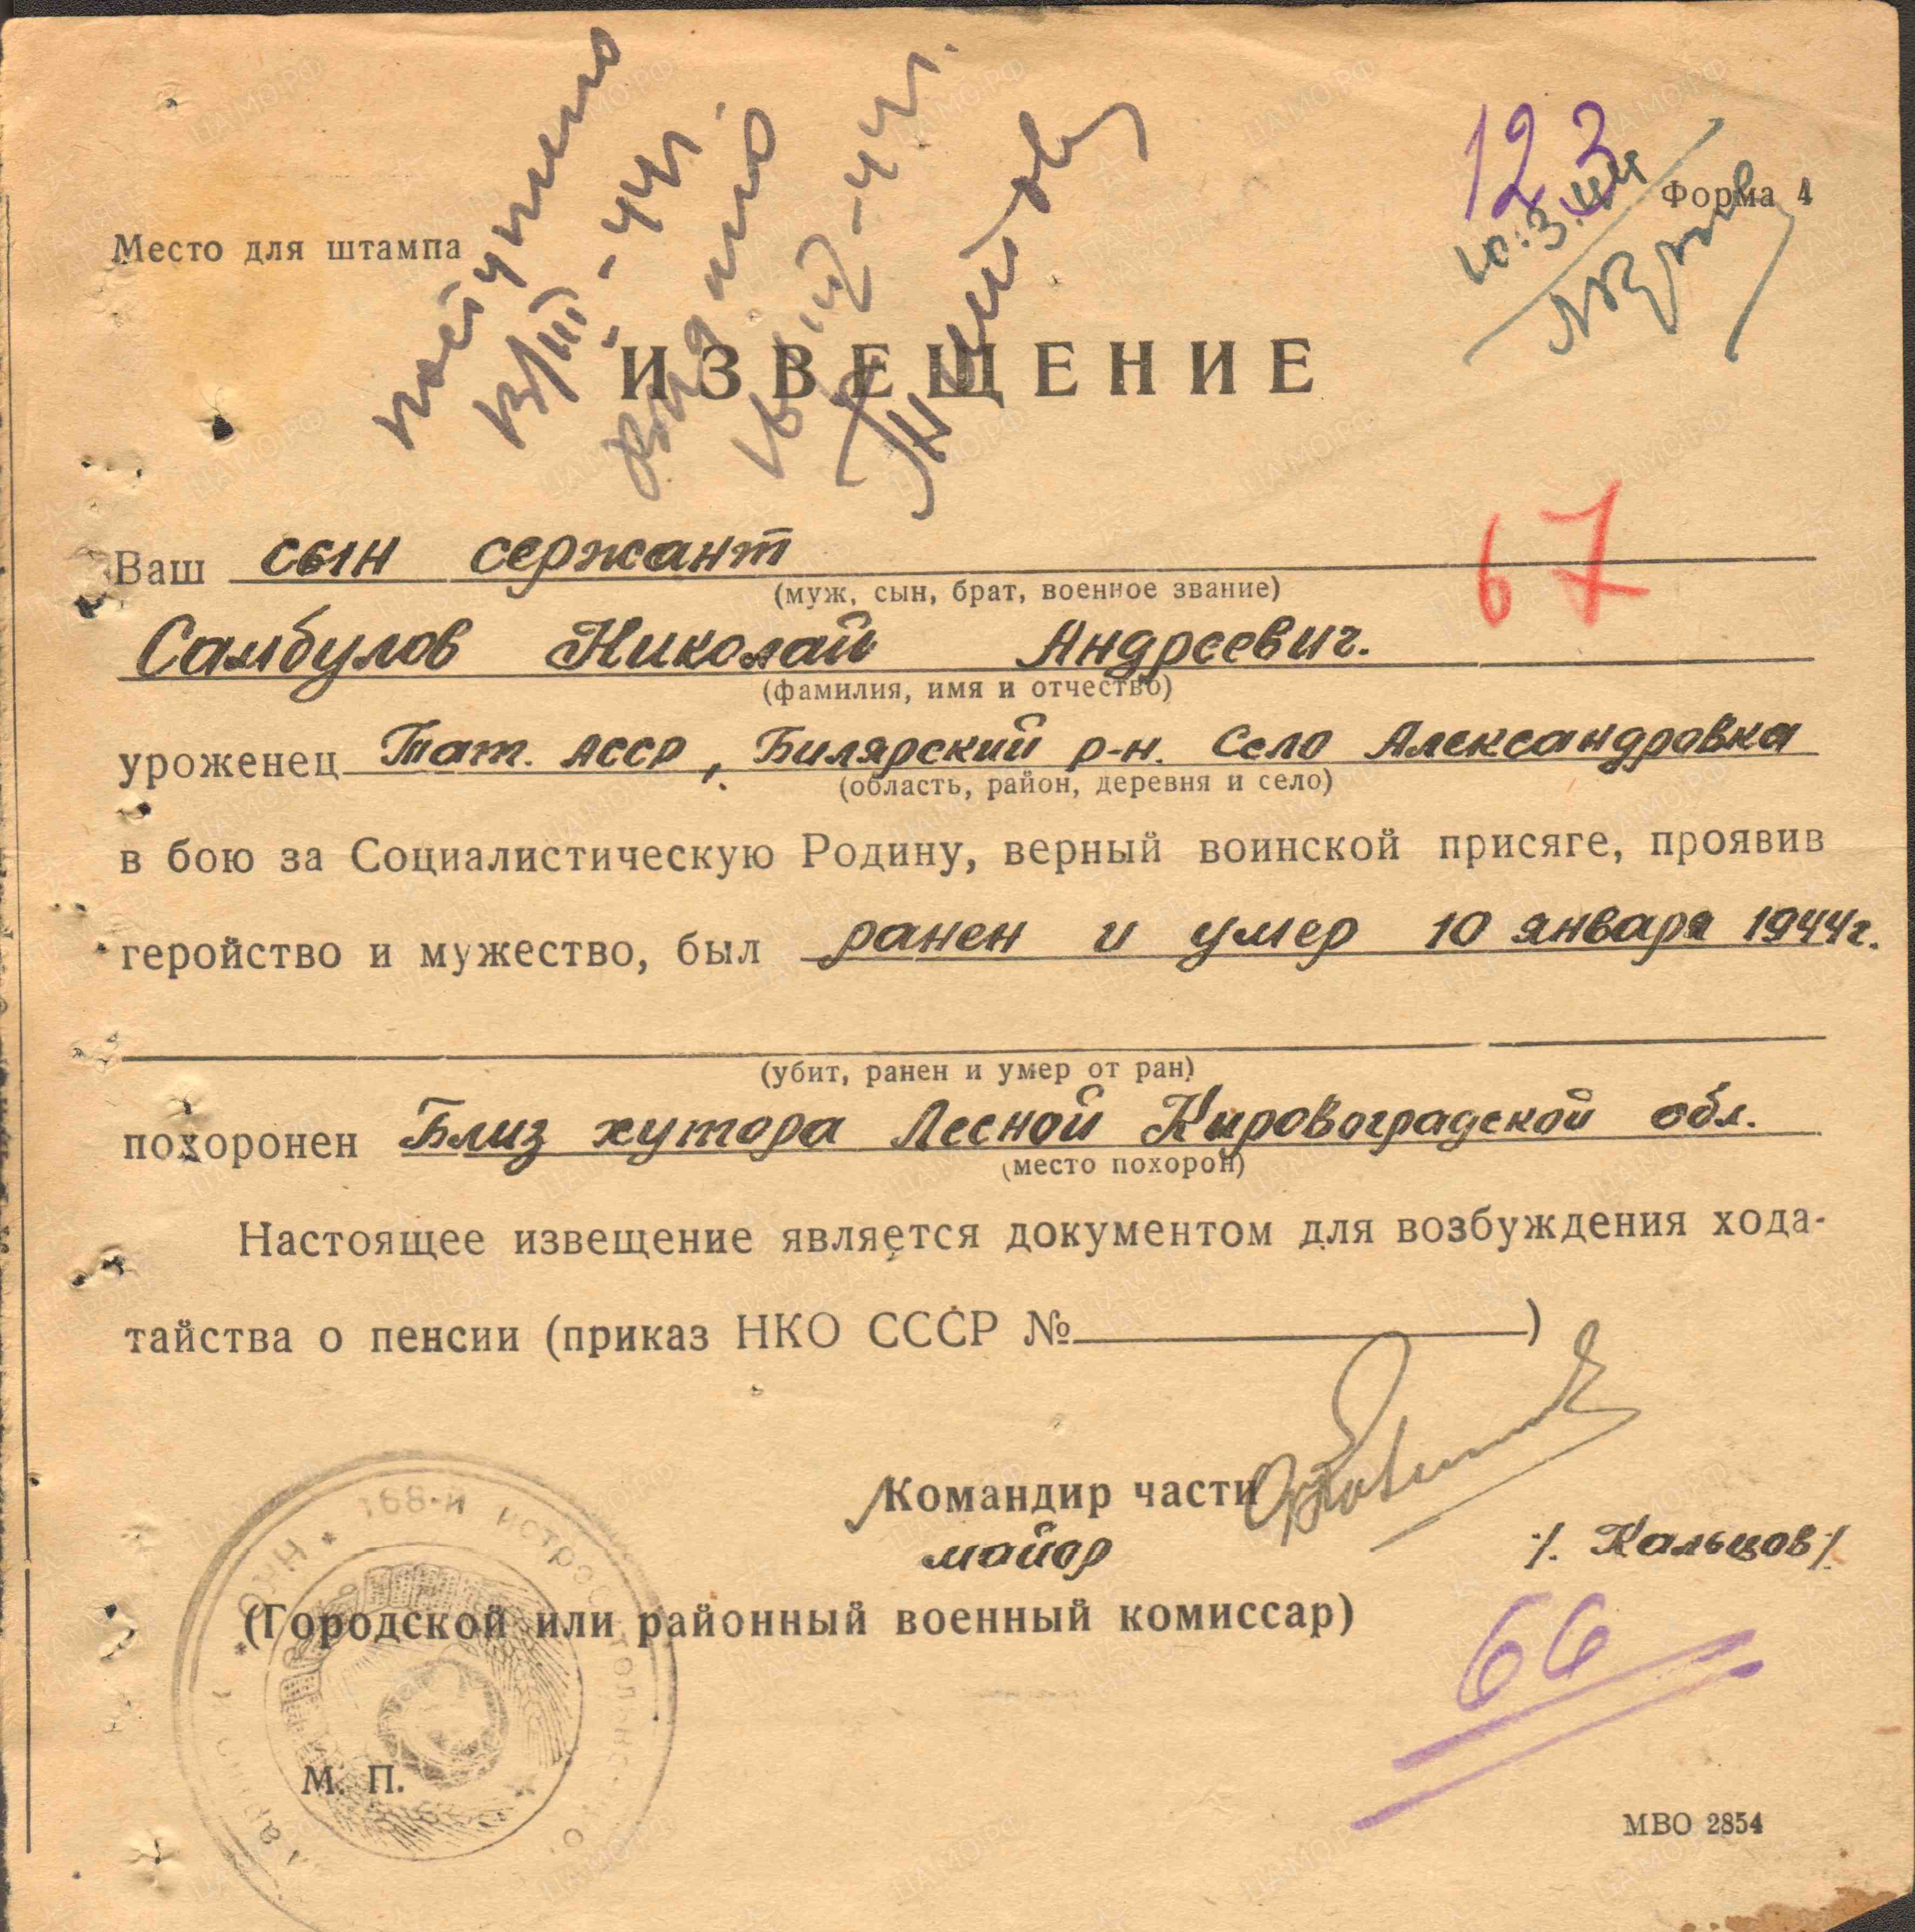 поступило
8/III-44г.
123
10.3.44
Форма 4
Место для штампа
ИЗВЕЩЕНИЕ
67
Ваш сын сержант
(муж, сын, брат, военное звание)
Самбулов Николай Андреевич.
(фамилия, имя и отчество)
уроженец Тат. АССР, Билярский р-н. Село Александровка
(область, район, деревня и село)
в бою за Социалистическую Родину, верный воинской присяге, проявив
геройство и мужество, был ранен и умер 10 января 1944г.
(убит, ранен и умер от ран)
похоронен Близ хутора Лесной Кировоградской обл.
(место похорон)
Настоящее извещение является документом для возбуждения хода-
тайства о пенсии (приказ НКО СССР №          )
Командир части
майор /. Кальцов/.
(Городской или районный военный комиссар)
66
М. П.
МВО 2854